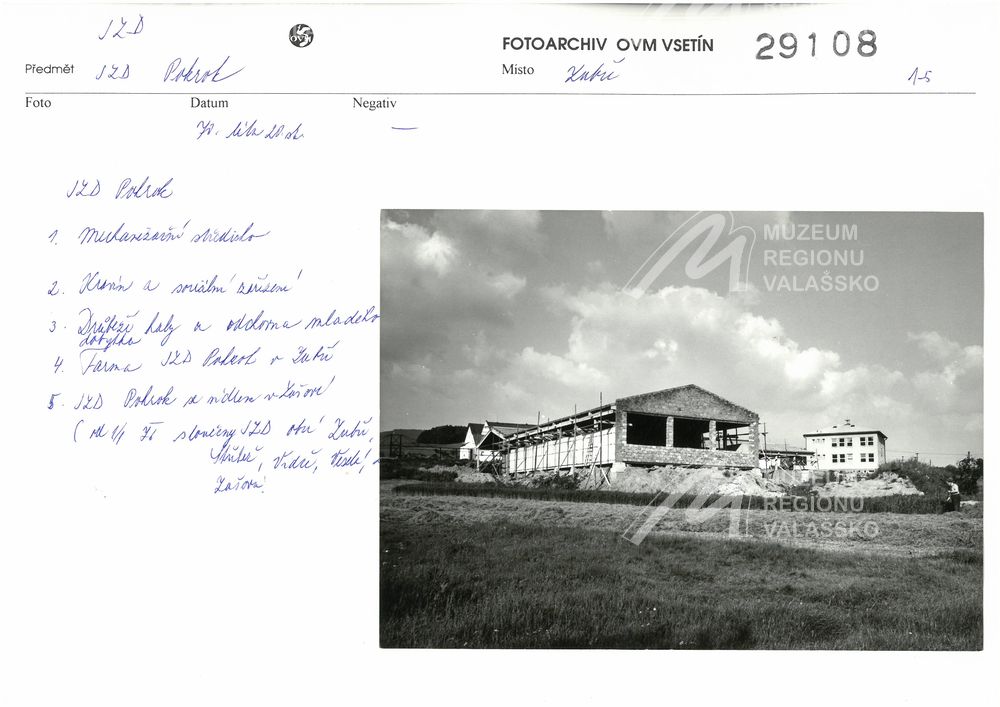 JZD
FOTOARCHIV OVM VSETÍN 29108
Předmět JZD Pokrok Místo Zubří 1-5
Foto Datum Negativ
70. léta 20. st. —
JZD Pokrok
1. Mechanizační středisko
2. Kravín a sociální zařízení
3. Drůbeží haly a odchovna mladého
dobytka
4. Farma JZD Pokrok v Zubří
5. JZD Pokrok se sídlem v Zašové
(od 1/1 sloučeny JZD obcí Zubří,
Střítež, Vidče, Veselá, a
Zašová)
MUZEUM
REGIONU
VALAŠSKO
MUZEUM
REGIONU
VALAŠSKO